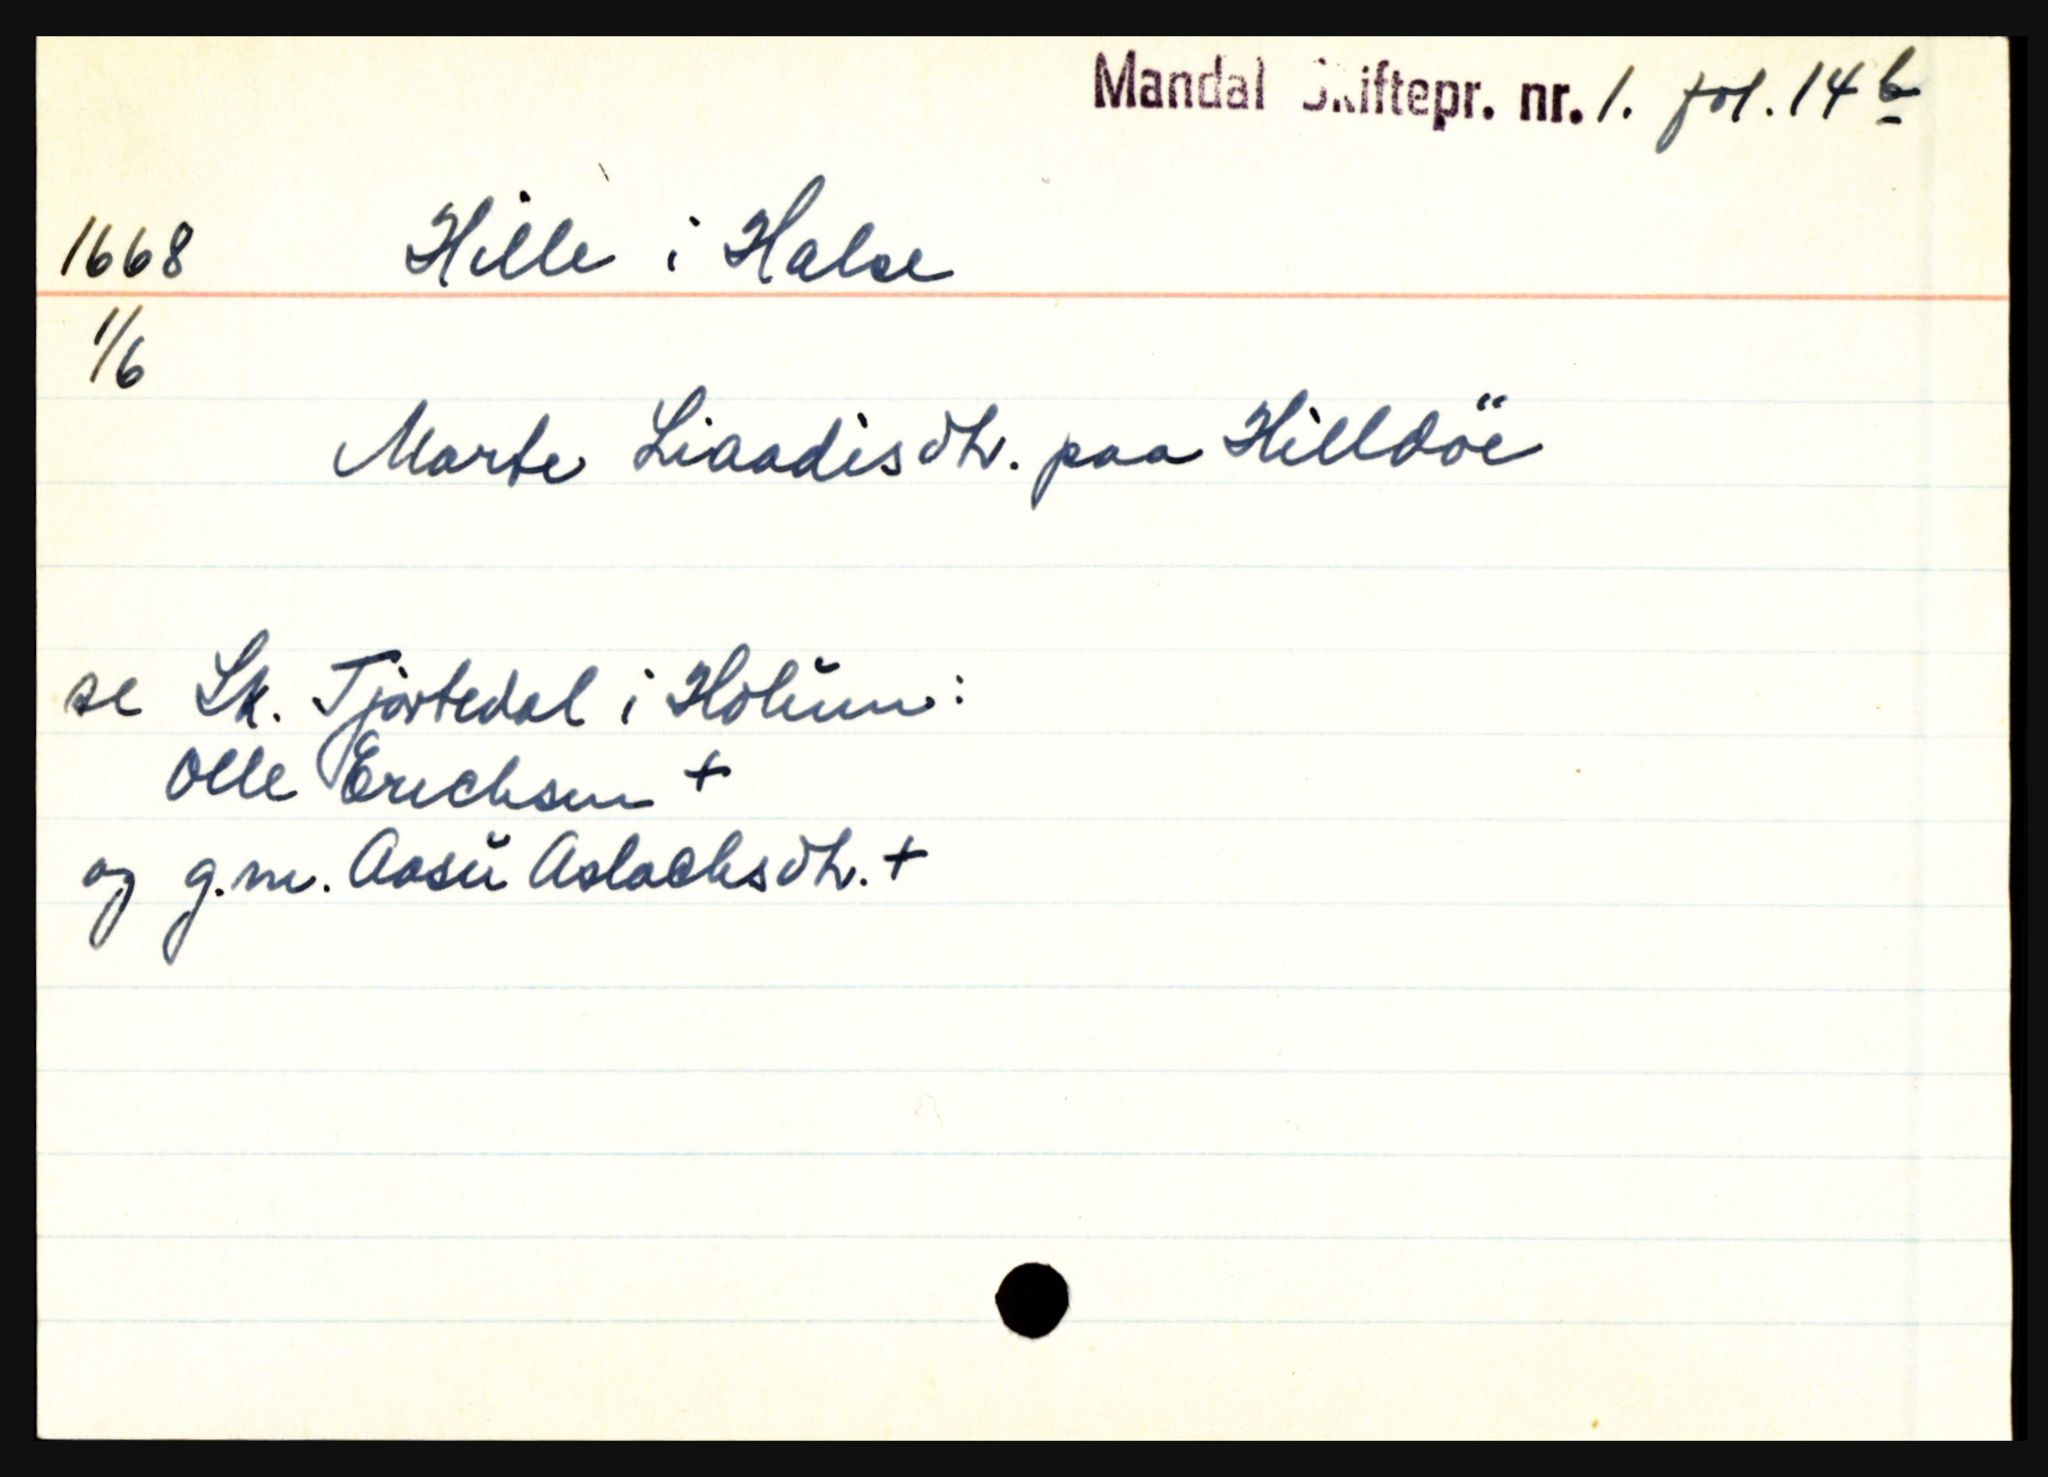 Mandal Skiftepr. nr. 1. fol. 14 b
1668 Hille i Halse
1/6
Marte Liaadisdtr. paa Hilldöe
se Sk. Tjortedal i Holum:
Olle Erichsen +
og g.m. Aasŭ Aslachsdtr. +